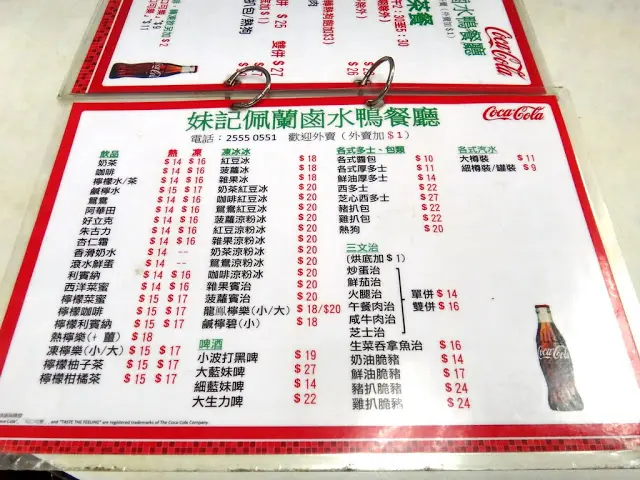 鹵水鴨餐廳
Coca-Cola
茶餐
2:30至5:30
雙併 $27
妹記佩蘭鹵水鴨餐廳
Coca-Cola
電話：2555 0551 歡迎外賣（外賣加$1）
飲品 熱 凍
奶茶 $14 $16
咖啡 $14 $16
檸檬水/茶 $14 $16
鹹檸水 $15 $17
鴛鴦 $14 $16
阿華田 $14 $16
好立克 $14 $16
朱古力 $14 $16
杏仁霜 $14 $16
香滑奶水 $14 --
滾水鮮蛋 $14 --
利賓納 $14 $16
西洋菜蜜 $14 $16
檸檬菜蜜 $15 $17
檸檬咖啡 $15 $17
檸檬利賓納 $15 $17
熱檸樂(+ 薑) $18
凍檸樂(小/大) $15 $17
檸檬柚子茶 $15 $17
檸檬柑橘茶 $15 $17
凍冰冰
紅豆冰 $18
菠蘿冰 $18
雜果冰 $18
奶茶紅豆冰 $20
咖啡紅豆冰 $20
鴛鴦紅豆冰 $20
菠蘿涼粉冰 $20
紅豆涼粉冰 $20
雜果涼粉冰 $20
奶茶涼粉冰 $20
鴛鴦涼粉冰 $20
咖啡涼粉冰 $20
雜果賓治 $20
菠蘿賓治 $20
龍鳳檸樂(小/大) $18/$20
鹹檸碧(小) $18
啤酒
小波打黑啤 $19
大藍妹啤 $27
細藍妹啤 $14
大生力啤 $22
各式多士、包類
各式麵包 $10
各式厚多士 $11
鮮油厚多士 $14
西多士 $22
芝心西多士 $27
豬扒包 $22
雞扒包 $22
熱狗 $20
三文治
(烘底加 $1)
炒蛋治
鮮茄治
火腿治
午餐肉治
咸牛肉治
芝士治
單併 $14
雙併 $16
生菜吞拿魚治 $16
奶油脆豬 $14
鮮油脆豬 $17
豬扒脆豬 $24
雞扒脆豬 $24
各式汽水
大樽裝 $11
細樽裝/罐裝 $9
Coca-Cola
and "TASTE THE FEELING" are registered trademarks of The Coca-Cola Company.